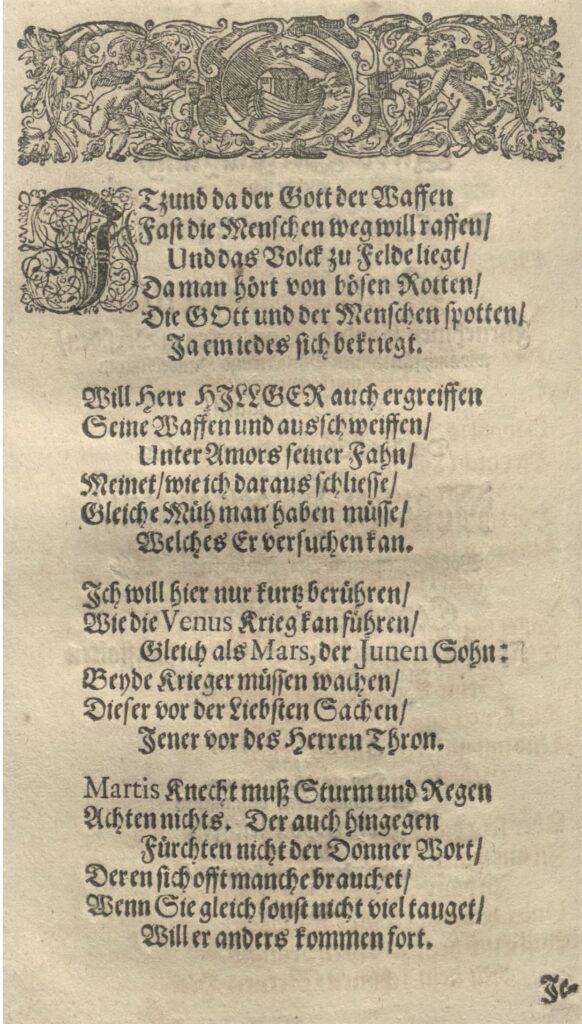 JTzund da der Gott der Waffen
Fast die Menschen weg will raffen/
Und das Volck zu Felde liegt/
Da man hört von bösen Rotten/
Die GOtt und der Menschen spotten/
Ja ein iedes sich bekriegt.
Will Herr HJLLGER auch ergreiffen
Seine Waffen und ausschweiffen/
Unter Amors seiner Fahn/
Meinet/ wie ich daraus schliesse/
Gleiche Müh man haben müsse/
Welches Er versuchen kan.
Jch will hier nur kurtz berühren/
Wie die Venus Krieg kan führen/
Gleich als Mars, der Junen Sohn:
Beyde Krieger müssen wachen/
Dieser vor der Liebsten Sachen/
Jener vor des Herren Thron.
Martis Knecht muß Sturm und Regen
Achten nichts. Der auch hingegen
Fürchten nicht der Donner Wort/
Deren sich offt manche brauchet/
Wenn Sie gleich sonst nicht viel tauget/
Will er anders kommen fort.
Je-